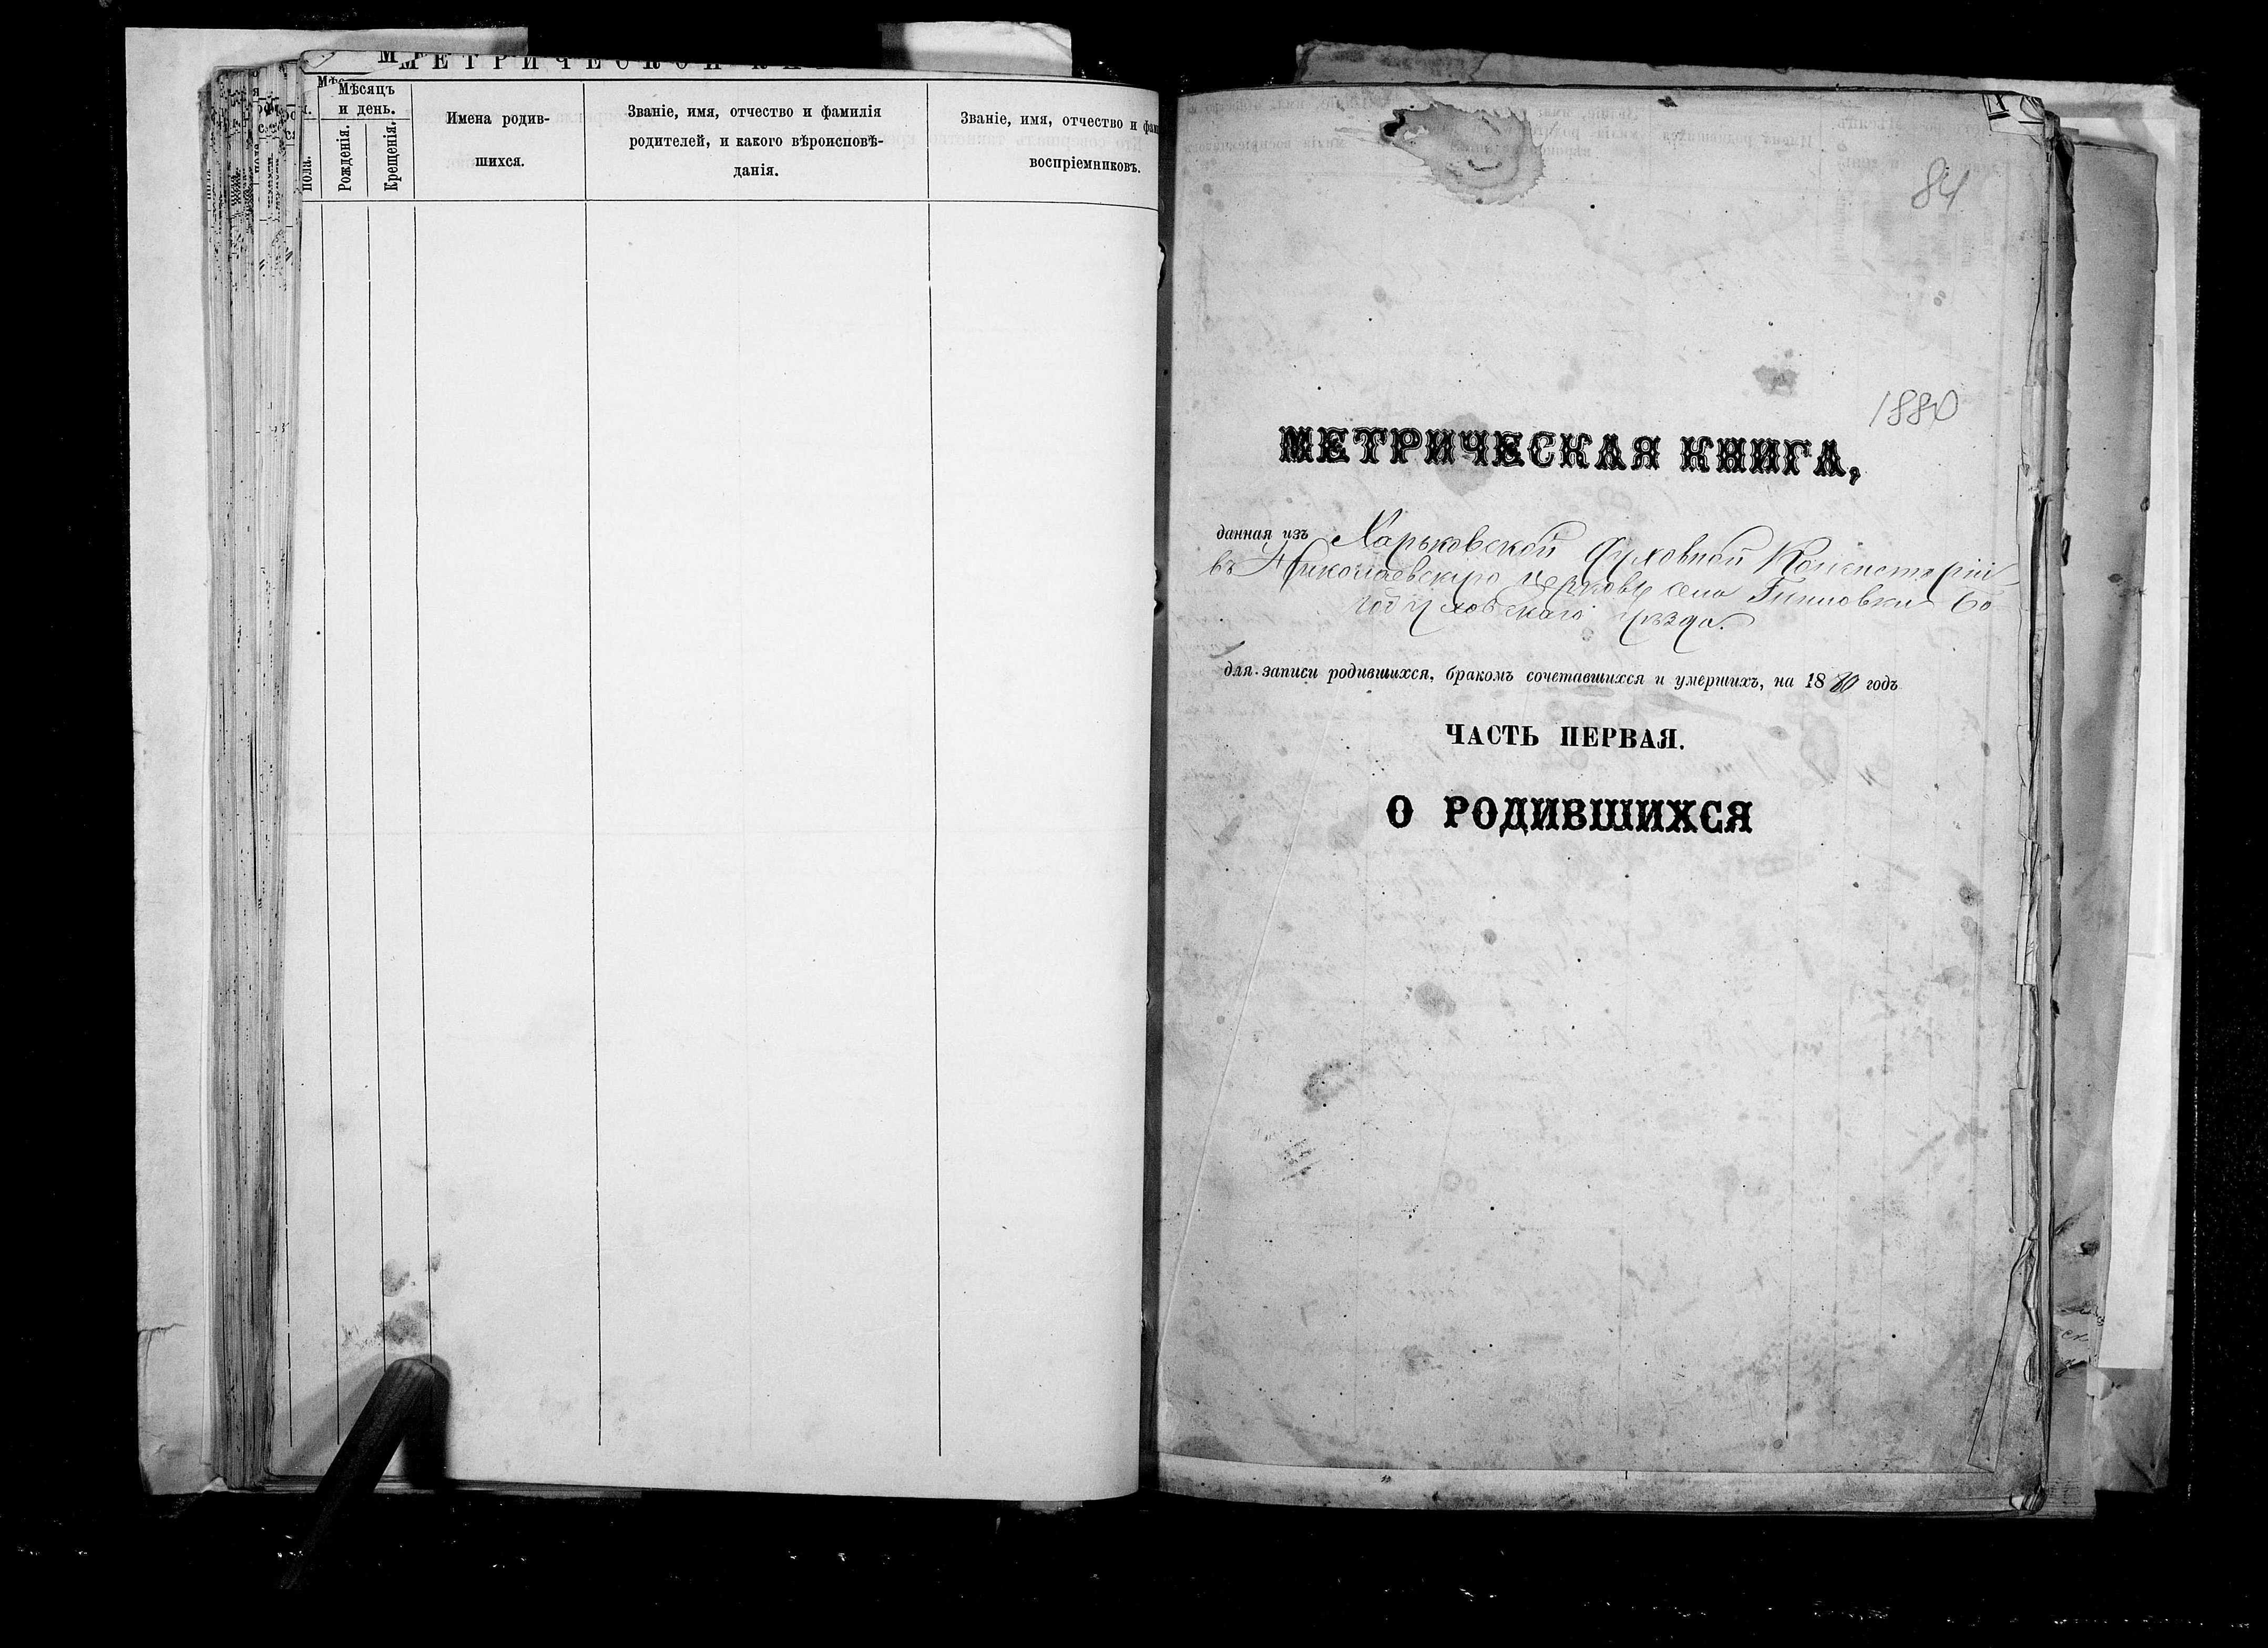 МЕТРИЧЕСКОЙ
Мѣсяцъ
и день.
пола.
Рожденія.
Крещенія.
Имена родив-
шихся.
Званіе, имя, отчество и фамилія
родителей, и какого вѣроисповѣ-
данія.
Званіе, имя, отчество и фам
воспріемниковъ.
84
1880
МЕТРИЧЕСКАЯ КНИГА,
данная изъ Харьковской Духовной Консисторіи
въ Николаевскую церковь села Бо
годуховскаго уѣзда.
для записи родившихся, бракомъ сочетавшихся и умершихъ, на 1880 годъ
ЧАСТЬ ПЕРВАЯ.
О РОДИВШИХСЯ